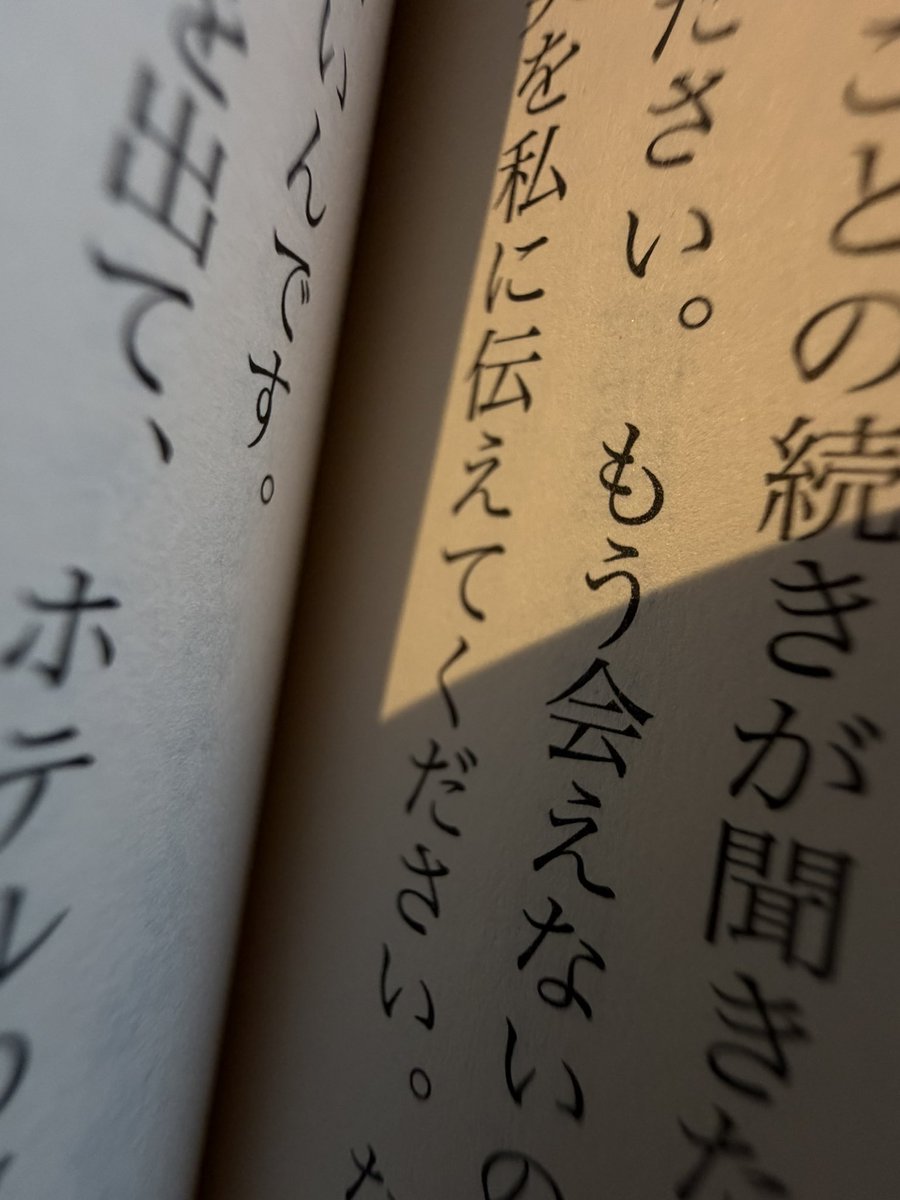 ことの続きが聞きた
ださい。もう会えないの
を私に伝えてください。
いんです。
出て、ホテル